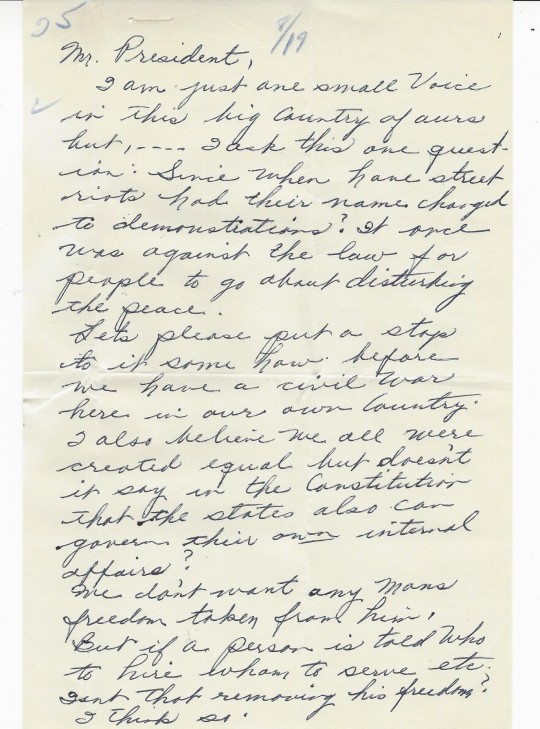 25
8/19
Mr. President,
I am just one small Voice
in this big Country of ours
but, ---- I ask this one quest-
ion: Since when have street
riots had their name changed
to demonstrations? It once
was against the law for
people to go about disturbing
the peace.
Lets please put a stop
to it some how before
we have a civil war
here in our own Country.
I also believe we all were
created equal but doesn't
it say in the Constitution
that the states also can
govern their own internal
affairs?
We don't want any mans
freedom taken from him,
But if a person is told who
to hire whom to serve etc.
Isnt that removing his freedom?
I think so.